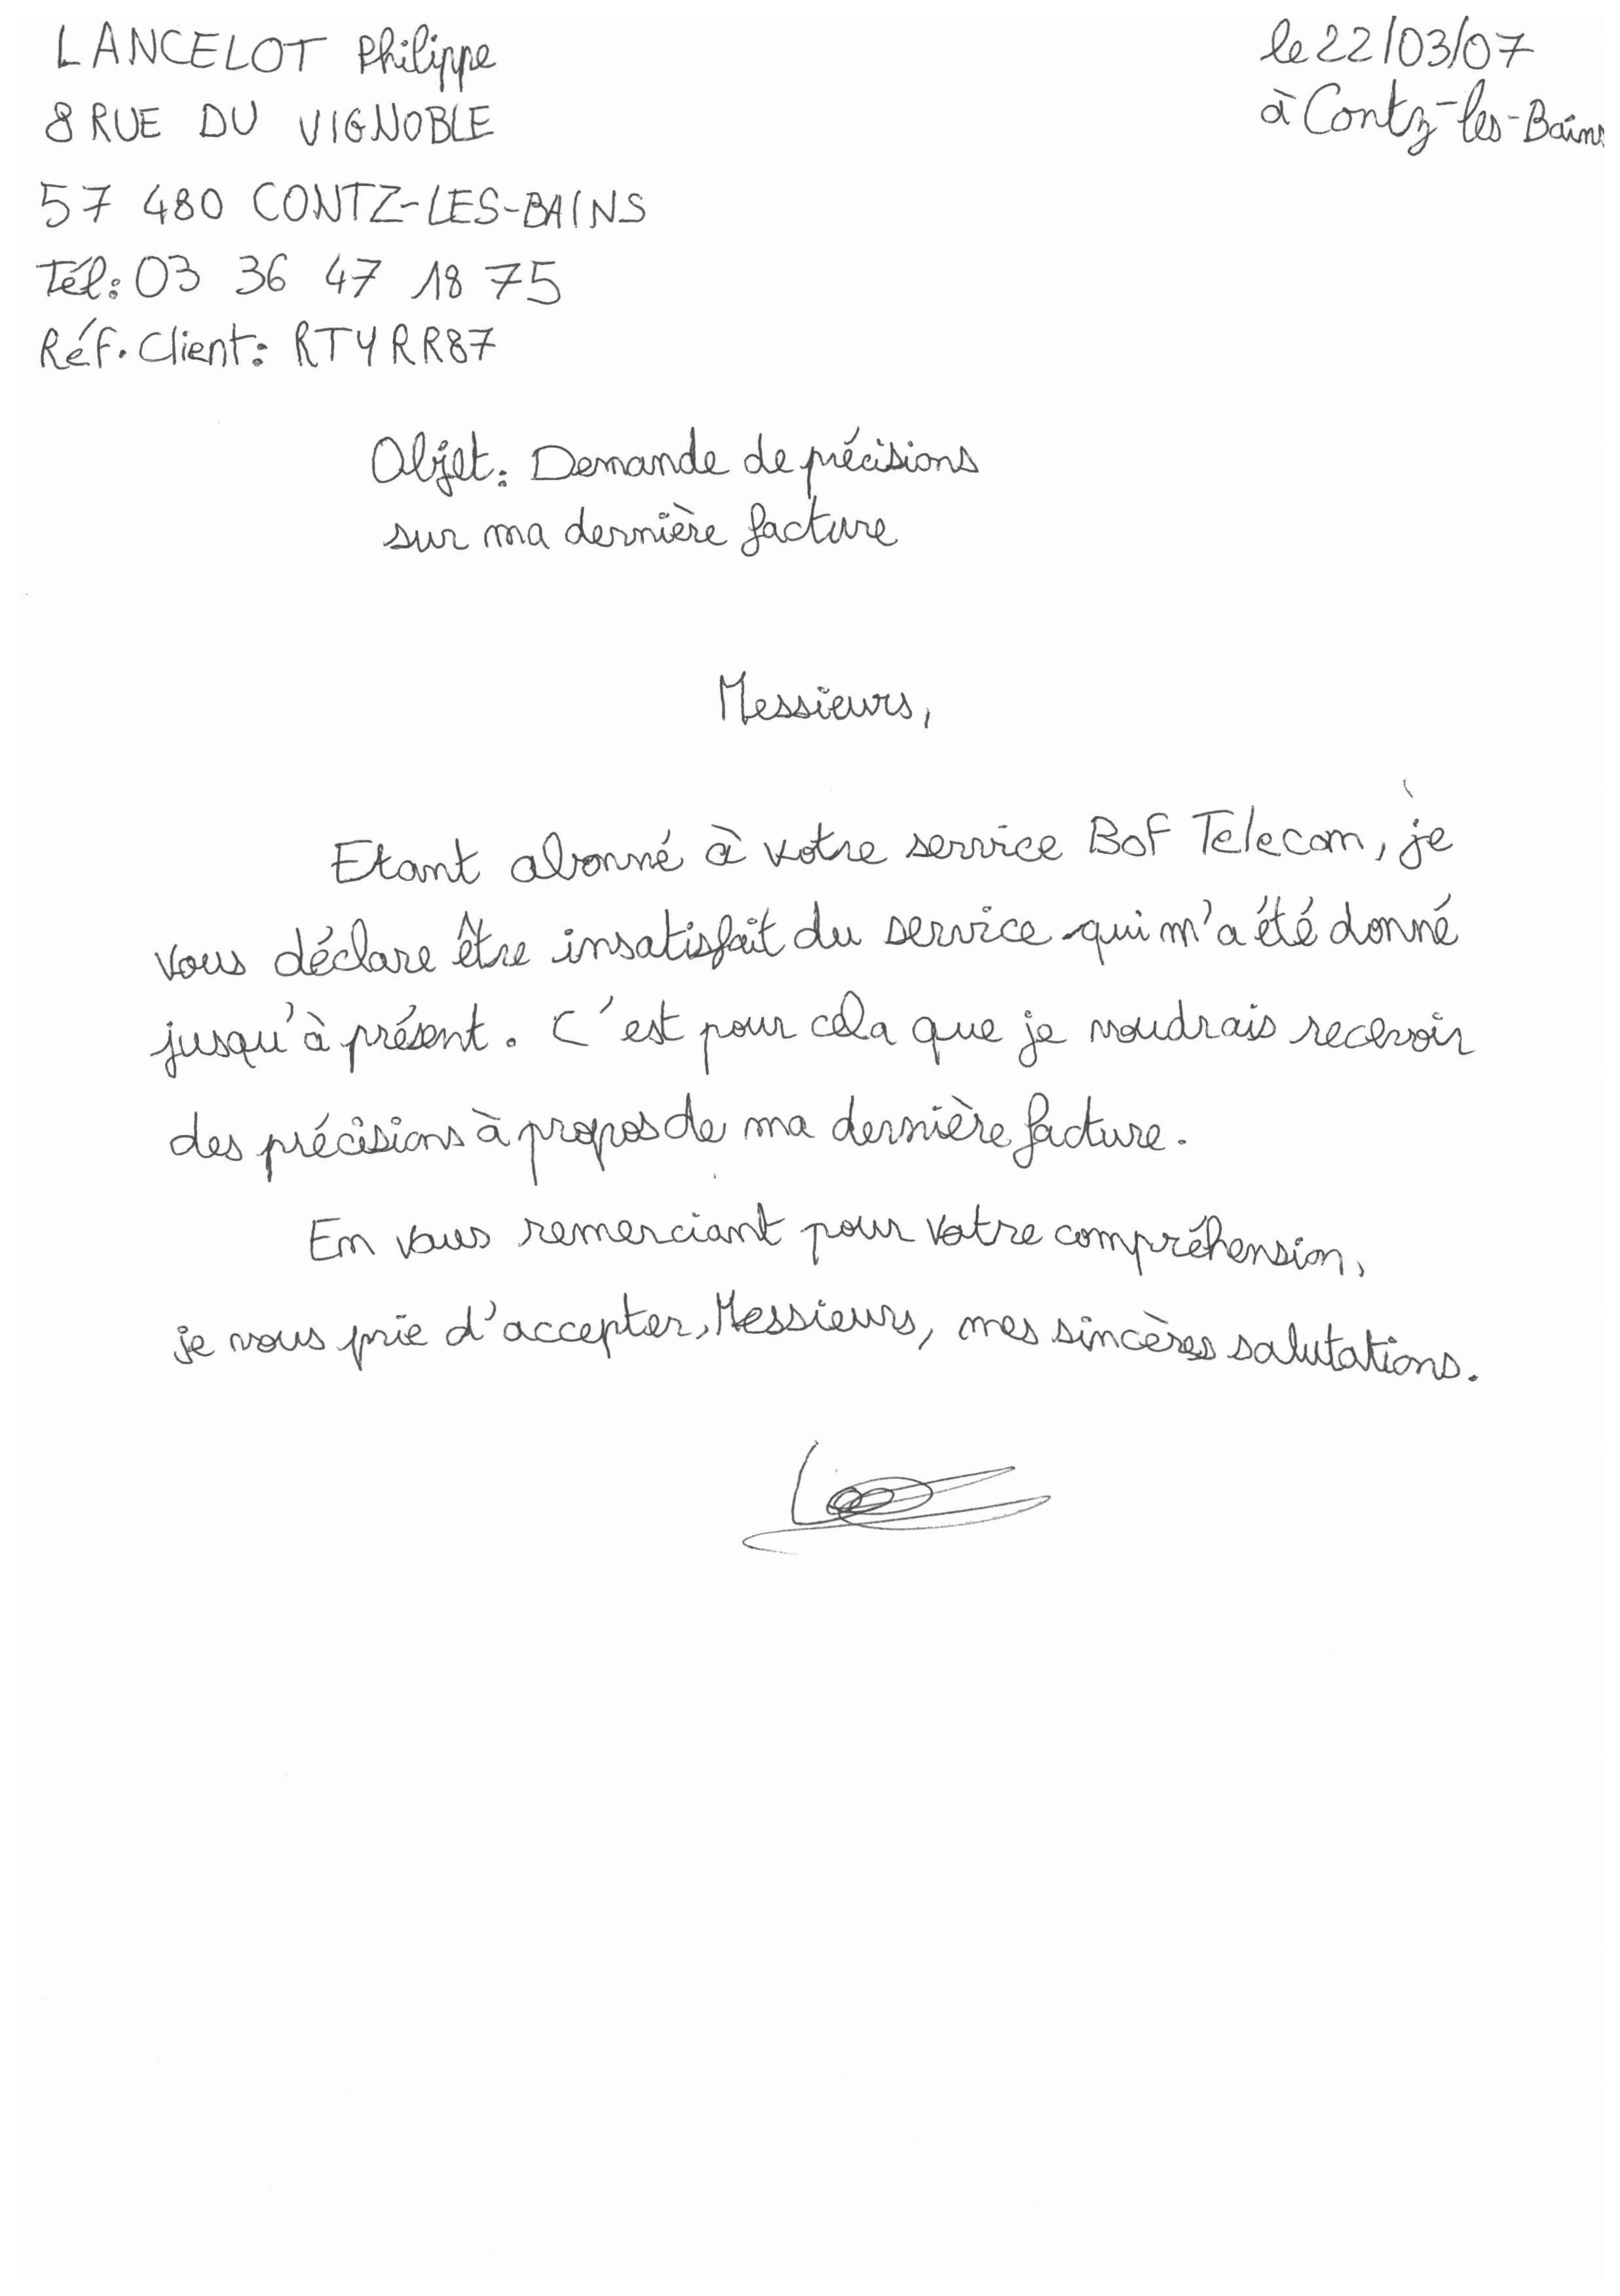 LANCELOT Philippe
8 RUE DU VIGNOBLE
57 480 CONTZ-LES-BAINS
Tél: 03 36 47 18 75
Réf. Client: RTYRR87
le 22/03/07
à Contz-les-Bains
Objet: Demande de précisions
sur ma dernière facture
Messieurs,
Etant abonné à votre service Bof Telecom, je
vous déclare être insatisfait du service qui m'a été donné
jusqu'à présent. C'est pour cela que je voudrais recevoir
des précisions à propos de ma dernière facture.
En vous remerciant pour votre compréhension,
je vous prie d'accepter, Messieurs, mes sincères salutations.